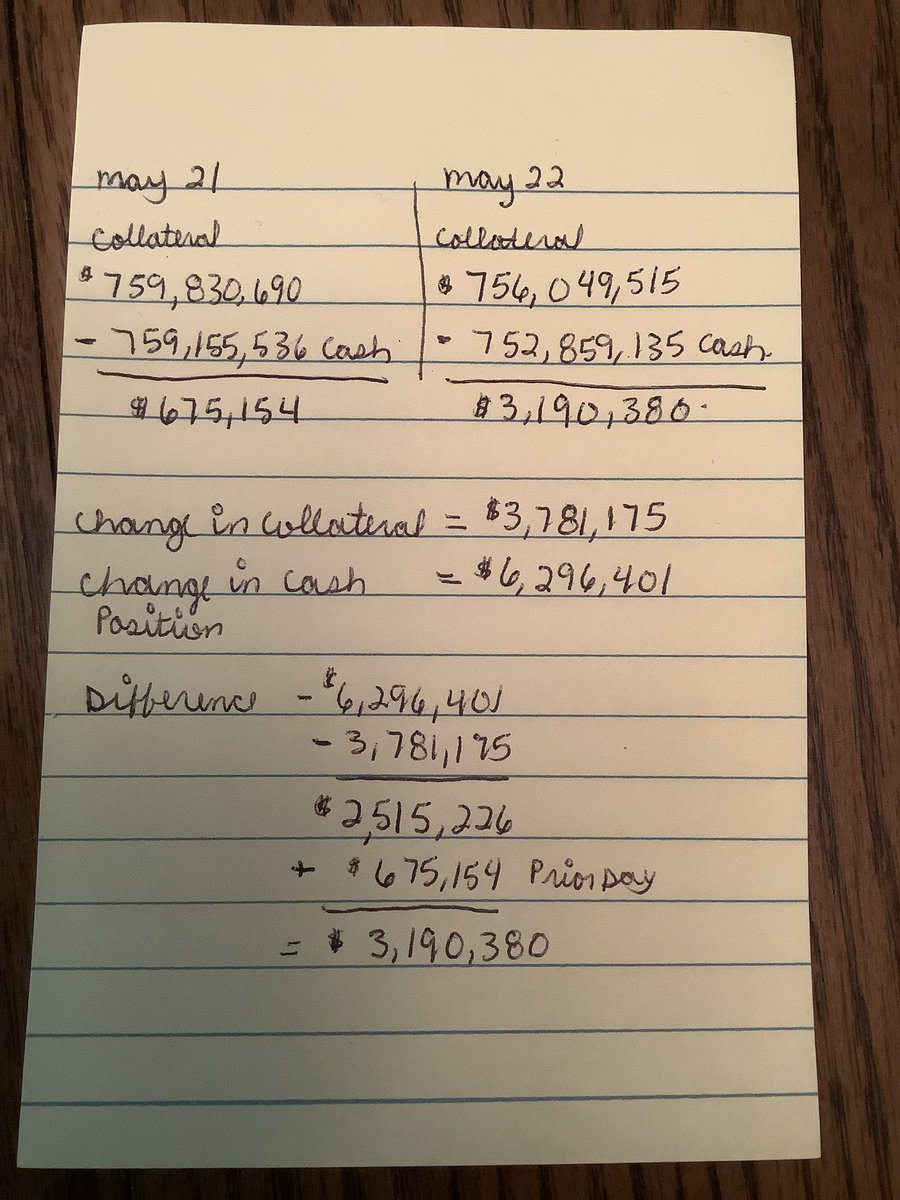 may 21
Collateral
$759,830,690
- 759,155,536 Cash
$675,154
may 22
Collateral
$756,049,515
- 752,859,135 Cash.
$3,190,380.
Change in Collateral = $3,781,175
Change in Cash = $6,296,401
Position
Difference - $6,296,401
- 3,781,175
$2,515,226
+ $675,154 Prior Day
= $ 3,190,380